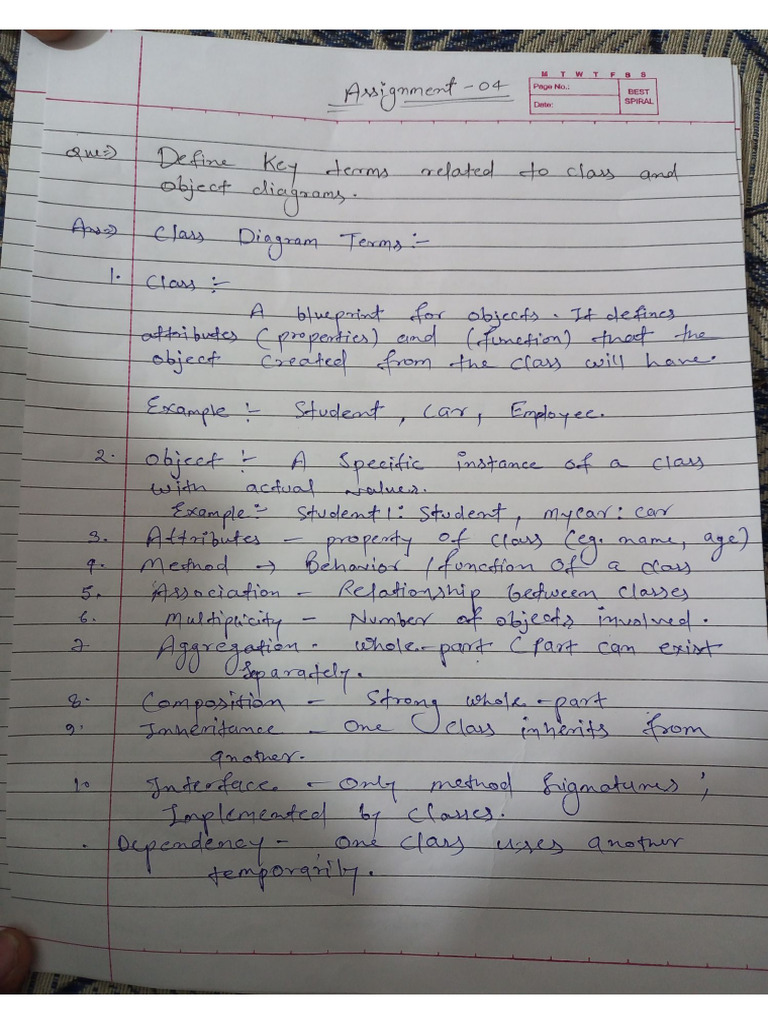 Assignment - 04
M T W T F S S
Page No.:
Date:
BEST
SPIRAL
Que⇒ Define Key terms related to class and
object diagrams.
Ans⇒ Class Diagram Terms :-
1. Class :-
A blueprint for objects. It defines
attributes (properties) and (function) that the
object created from the class will have.
Example :- Student, Car, Employee.
2. Object :- A Specific instance of a class
with actual values.
Example :- Student1: Student, mycar: car
3. Attributes - property of class (eg. name, age)
4. Method → Behavior / function of a class
5. Association - Relationship between classes
6. Multiplicity - Number of objects involved.
7. Aggregation - whole-part (Part can exist
separately.
8. Composition - Strong whole-part
9. Inheritance - One class inherits from
another.
10. Interface - Only method Signatures;
Implemented by classes.
. Dependency - One class uses another
temporarily.